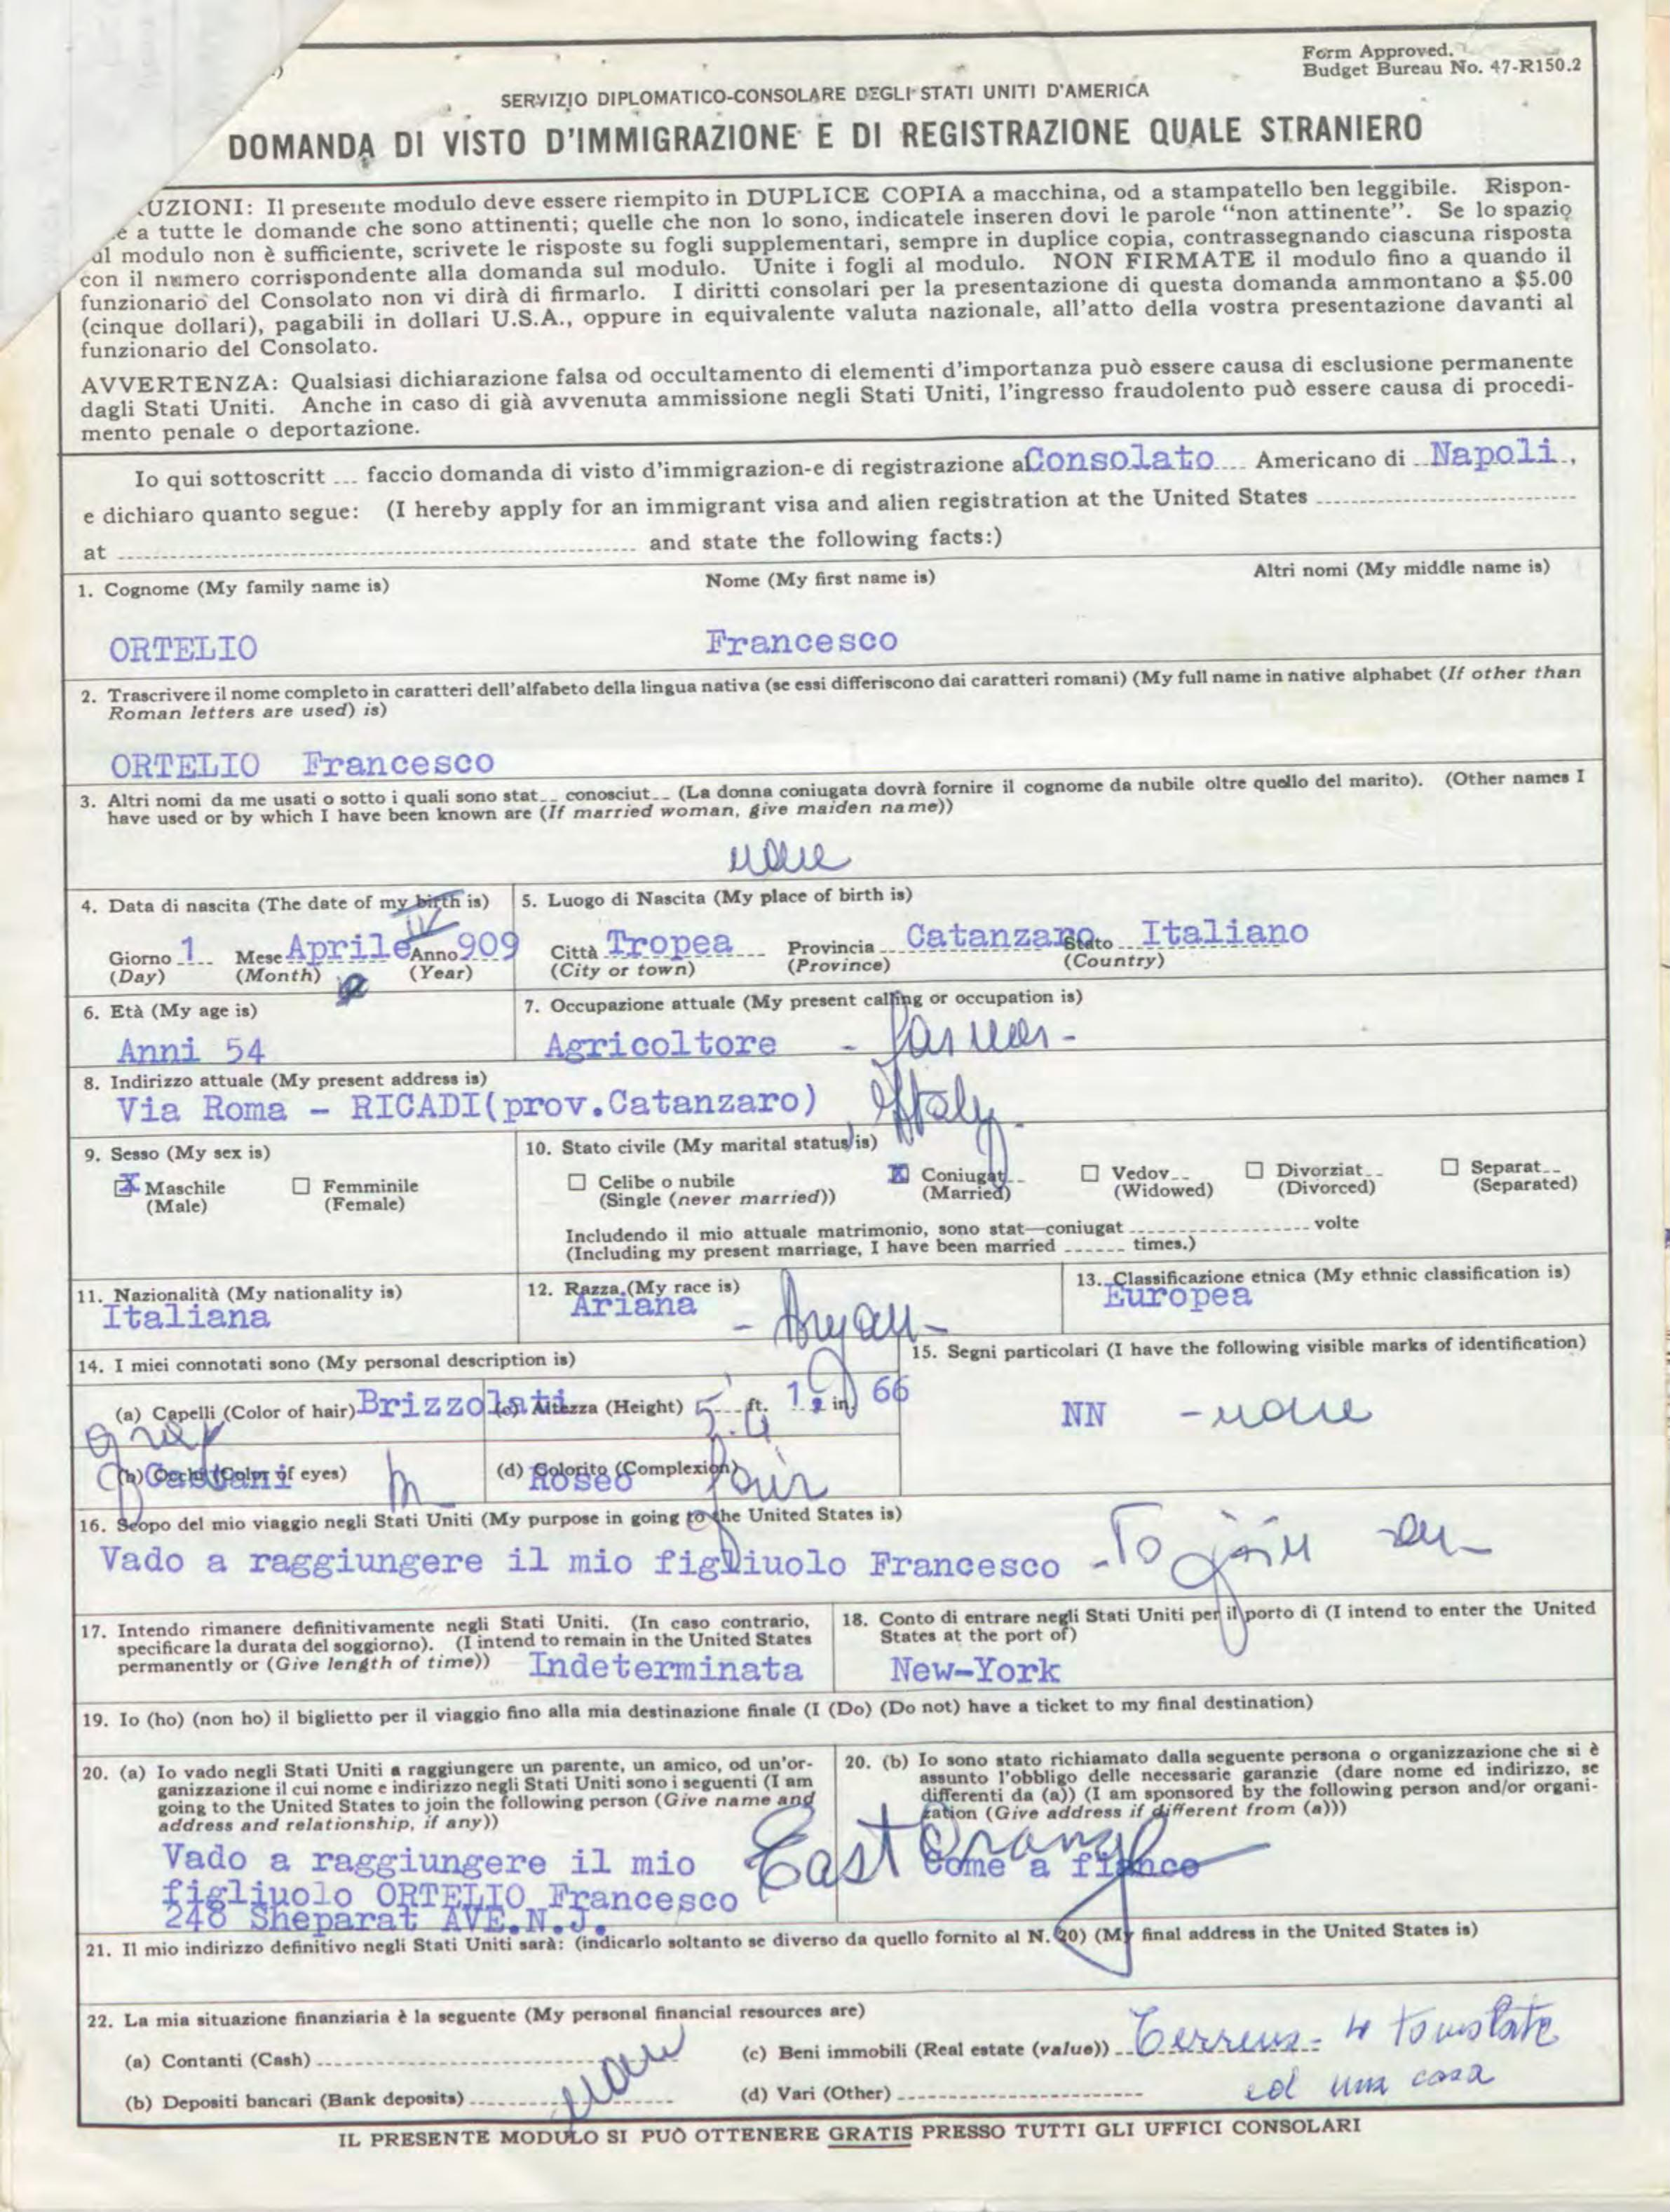 Form Approved.
Budget Bureau No. 47-R150.2
SERVIZIO DIPLOMATICO-CONSOLARE DEGLI STATI UNITI D'AMERICA
DOMANDA DI VISTO D'IMMIGRAZIONE E DI REGISTRAZIONE QUALE STRANIERO
UZIONI: Il presente modulo deve essere riempito in DUPLICE COPIA a macchina, od a stampatello ben leggibile. Rispon-
e a tutte le domande che sono attinenti; quelle che non lo sono, indicatele inseren dovi le parole "non attinente". Se lo spazio
ul modulo non è sufficiente, scrivete le risposte su fogli supplementari, sempre in duplice copia, contrassegnando ciascuna risposta
con il numero corrispondente alla domanda sul modulo. Unite i fogli al modulo. NON FIRMATE il modulo fino a quando il
funzionario del Consolato non vi dirà di firmarlo. I diritti consolari per la presentazione di questa domanda ammontano a $5.00
(cinque dollari), pagabili in dollari U.S.A., oppure in equivalente valuta nazionale, all'atto della vostra presentazione davanti al
funzionario del Consolato.
AVVERTENZA: Qualsiasi dichiarazione falsa od occultamento di elementi d'importanza può essere causa di esclusione permanente
dagli Stati Uniti. Anche in caso di già avvenuta ammissione negli Stati Uniti, l'ingresso fraudolento può essere causa di procedi-
mento penale o deportazione.
Io qui sottoscritt ... faccio domanda di visto d'immigrazion-e di registrazione al Consolato Americano di Napoli,
e dichiaro quanto segue: (I hereby apply for an immigrant visa and alien registration at the United States
at and state the following facts:)
1. Cognome (My family name is) Nome (My first name is) Altri nomi (My middle name is)
ORTELIO Francesco
2. Trascrivere il nome completo in caratteri dell'alfabeto della lingua nativa (se essi differiscono dai caratteri romani) (My full name in native alphabet (If other than
Roman letters are used) is)
ORTELIO Francesco
3. Altri nomi da me usati o sotto i quali sono stat__ conosciut__ (La donna coniugata dovrà fornire il cognome da nubile oltre quello del marito). (Other names I
have used or by which I have been known are (If married woman, give maiden name))
none
4. Data di nascita (The date of my birth is) 5. Luogo di Nascita (My place of birth is)
IV
Giorno 1 Mese Aprile Anno 909 Città Tropea Provincia Catanzaro Stato Italiano
(Day) (Month) (Year) (City or town) (Province) (Country)
6. Età (My age is) 7. Occupazione attuale (My present calling or occupation is)
Anni 54 Agricoltore - farmer -
8. Indirizzo attuale (My present address is)
Via Roma - RICADI(prov.Catanzaro) Italy
9. Sesso (My sex is) 10. Stato civile (My marital status is)
X Maschile Femminile Celibe o nubile X Coniugat__ Vedov__ Divorziat__ Separat__
(Male) (Female) (Single (never married)) (Married) (Widowed) (Divorced) (Separated)
Includendo il mio attuale matrimonio, sono stat—coniugat volte
(Including my present marriage, I have been married ------ times.)
11. Nazionalità (My nationality is) 12. Razza (My race is) 13. Classificazione etnica (My ethnic classification is)
Italiana Ariana - Aryan - Europea
14. I miei connotati sono (My personal description is) 15. Segni particolari (I have the following visible marks of identification)
(a) Capelli (Color of hair) Brizzolati (c) Altezza (Height) 5 ft. in 66 NN - none
gray 4
(b) Occhi (Color of eyes) Castani (d) Colorito (Complexion) Roseo fair
16. Scopo del mio viaggio negli Stati Uniti (My purpose in going to the United States is)
Vado a raggiungere il mio figliuolo Francesco - To join son
17. Intendo rimanere definitivamente negli Stati Uniti. (In caso contrario, 18. Conto di entrare negli Stati Uniti per il porto di (I intend to enter the United
specificare la durata del soggiorno). (I intend to remain in the United States States at the port of)
permanently or (Give length of time)) Indeterminata New-York
19. Io (ho) (non ho) il biglietto per il viaggio fino alla mia destinazione finale (I (Do) (Do not) have a ticket to my final destination)
20. (a) Io vado negli Stati Uniti a raggiungere un parente, un amico, od un'or-
ganizzazione il cui nome e indirizzo negli Stati Uniti sono i seguenti (I am
going to the United States to join the following person (Give name and
address and relationship, if any))
Vado a raggiungere il mio
figliuolo ORTELIO Francesco
248 Sheparat AVE.N.J.
East Orange
20. (b) Io sono stato richiamato dalla seguente persona o organizzazione che si è
assunto l'obbligo delle necessarie garanzie (dare nome ed indirizzo, se
differenti da (a)) (I am sponsored by the following person and/or organi-
zation (Give address if different from (a)))
Come a fianco
21. Il mio indirizzo definitivo negli Stati Uniti sarà: (indicarlo soltanto se diverso da quello fornito al N. 20) (My final address in the United States is)
22. La mia situazione finanziaria è la seguente (My personal financial resources are)
(a) Contanti (Cash) (c) Beni immobili (Real estate (value)) 4 tomolate
none
(b) Depositi bancari (Bank deposits) (d) Vari (Other) ed una casa
IL PRESENTE MODULO SI PUÒ OTTENERE GRATIS PRESSO TUTTI GLI UFFICI CONSOLARI